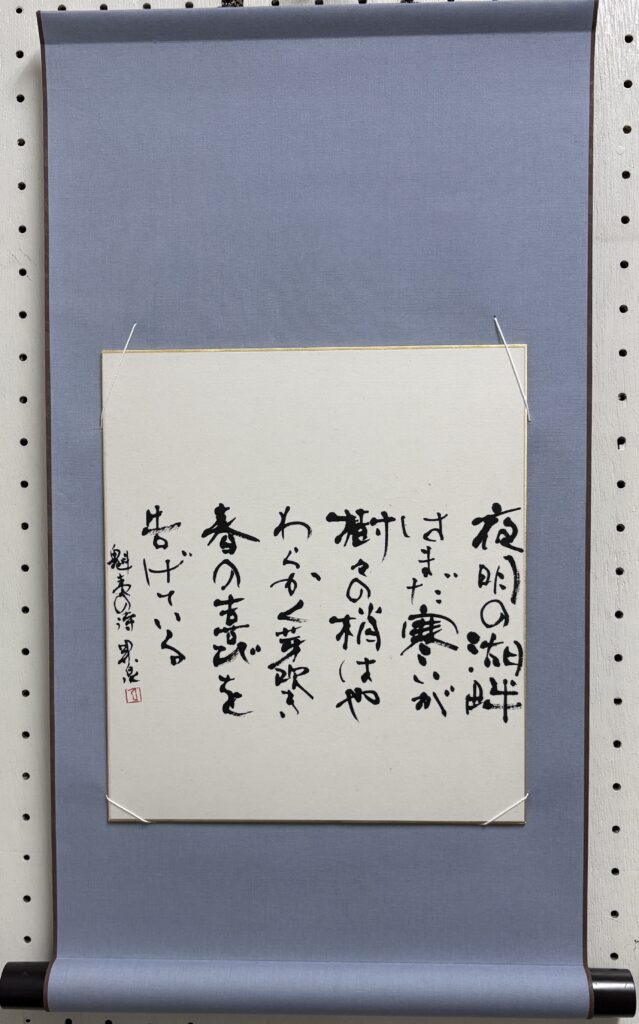 夜明の湖畔
はまだ寒いが
樹々の梢はや
わらかく芽吹き
春の喜びを
告げている
魁夷の詩